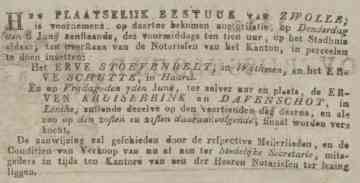 HET PLAATSELIJK BESTUUR VAN ZWOLLE,
is voornemens, op daartoe bekomen authorisatie, op Donderdag
den 6 Junij aanstaande, des voormiddags ten tien uur, op het Stadhuis
aldaar, ten overstaan van de Notarissen van het Kanton, in perceelen
te doen inzetten:
Het ERVE STOEVENBELT, in Wijthmen, en het ER-
VE SCHUTTE, in Haerst.
En op Vrijdag den 7den Junij, ter zelver uur en plaats, de ER-
VEN KRUISERHINK en DAVENSCHOT, in
zullende dezelve op den veertienden dag daarna, en alzoo
op den 20sten en 21sten daaraanvolgende, finaal worden ver-
kocht.
De aanwijzing zal geschieden door de respective Meijerlieden, en de
Conditien van Verkoop van nu af aan ter Stedelijke Secretarie, mits-
gaders in tijds ten Kantore van een der Heeren Notarissen ter lezing
liggen.